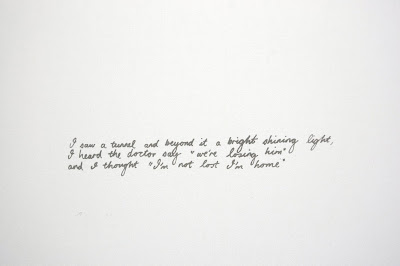 I saw a tunnel and beyond it a bright shining light,
I heard the doctor say "we're losing him"
and I thought "I'm not lost I'm home"